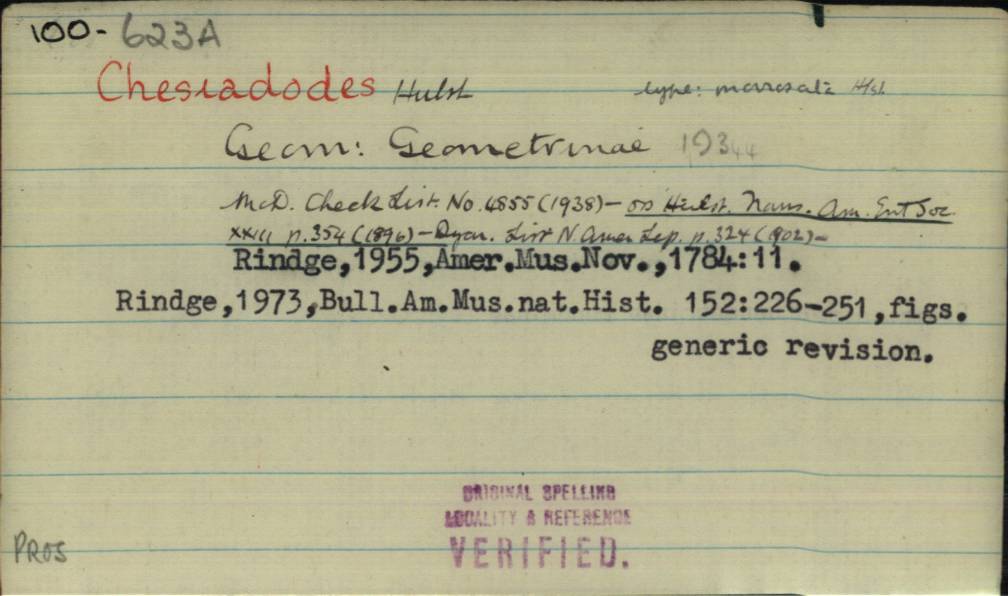 100- 623A
Chesiadodes Hulst type: morosata Hlst.
Geom: Geometrinae 19344
McD. Check List. No. 4855 (1938) — op Hulst. Trans. Am. Ent Soc
XXIII p. 354 (1896) — Dyar. List N. Amer Lep. p. 324 (1902) —
Rindge,1955,Amer.Mus.Nov.,1784:11.
Rindge,1973,Bull.Am.Mus.nat.Hist. 152:226-251,figs.
generic revision.
ORIGINAL SPELLING
LOCALITY & REFERENCE
VERIFIED.
PROS